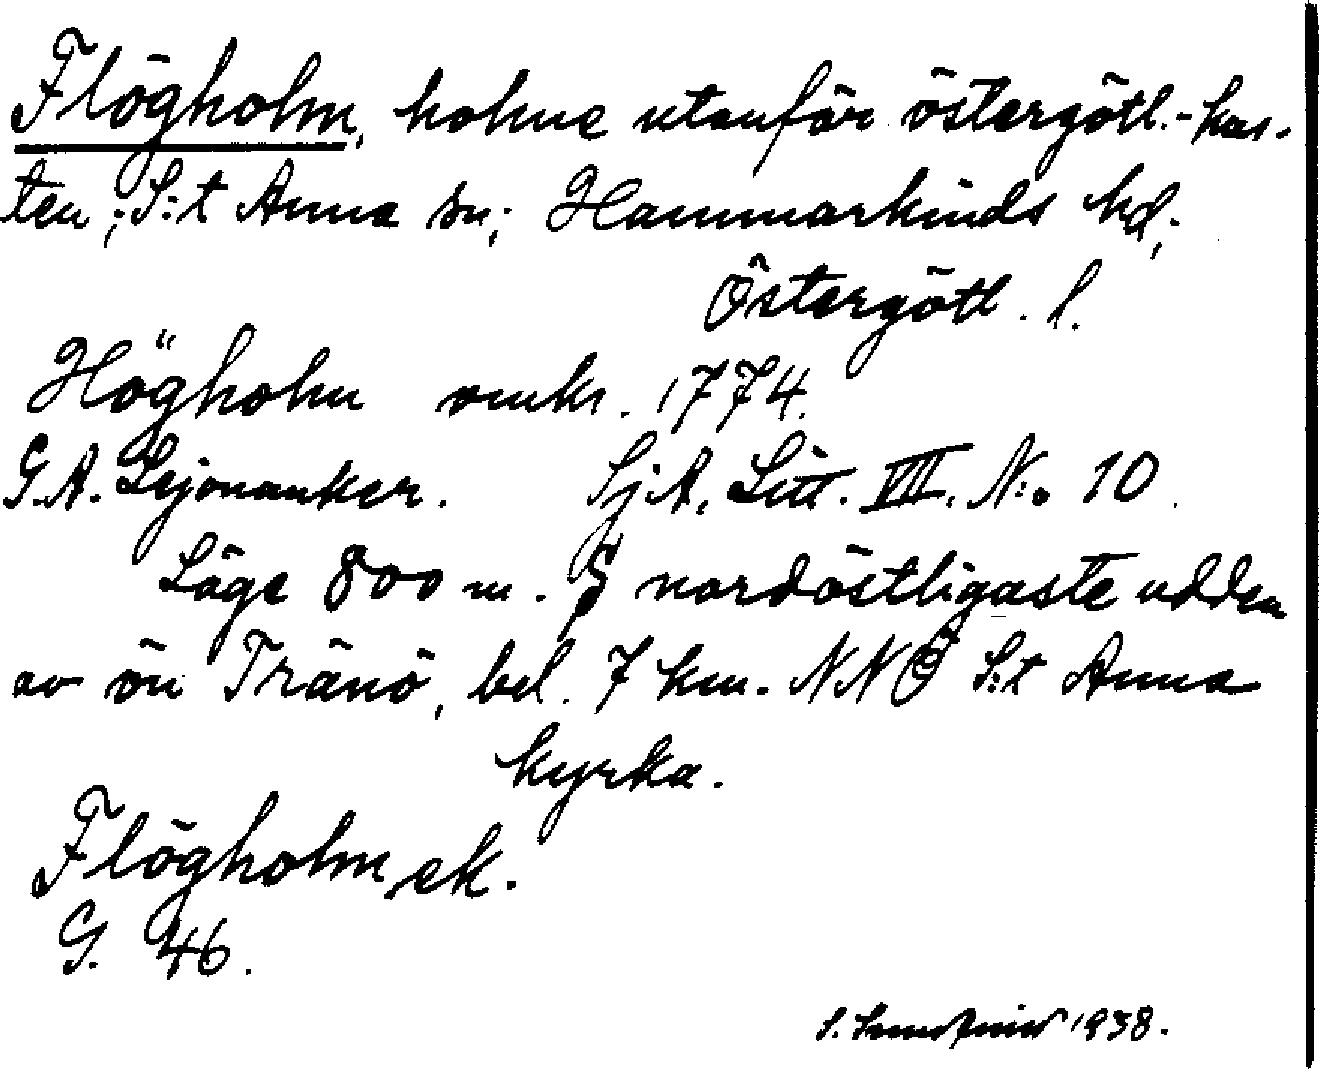 Flögholm, holme utanför östergötl.-kus-
ten; S:t Anna sn; Hammarkinds hd;
Östergötl. l.
Högholm omkr. 1774.
G.A. Lejonanker. SjA, Litt. VII. N:o 10.
Läge 800 m. S nordöstligaste udden
av ön Tränö, bel. 7 km. NNÖ S:t Anna
kyrka.
Flögholm, ek.
G. 46.
S. 1938.